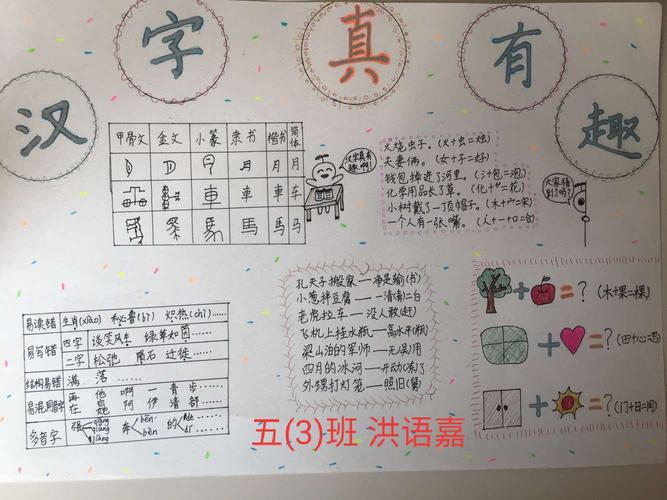 汉字真有趣
甲骨文 金文 小篆 隶书 楷书 简体
月 月 月
車 車 車 车
馬 馬 马
汉字真有趣啊!
火烧虫子。(火+虫=烛)
夫妻俩。(女+子=好)
钱包掉进了河里。(氵+包=泡)
化学用品长了草。(化+艹=花)
小树戴了一顶帽子。(木+宀=宋)
一个人有一张嘴。(人+一+口=合)
大家猜到了吗?
易读错 生肖(xiào) 秘鲁(bì) 炽热(chì)……
易写错 四字 谈笑风生 绿草如茵……
二字 松弛 陨石 迁徙……
结构易错 满 落 ……
易混同音字 再 他 啊 一 青 步…
在 她 阿 伊 清 部…
多音字 强 qiáng qiǎng jiàng 奔 bēn bèn 的 de
孔夫子搬家—净是输(书)
小葱拌豆腐—一清(青)二白
老虎拉车—没人敢(赶)
飞机上挂水瓶—高水平(瓶)
梁山泊的军师—无(吴)用
四月的冰河—开动(冻)了
外甥打灯笼—照旧(舅)
+ = ? (木+果=棵)
+ = ? (田+心=思)
+ = ? (门+日=间)
五(3)班 洪语嘉